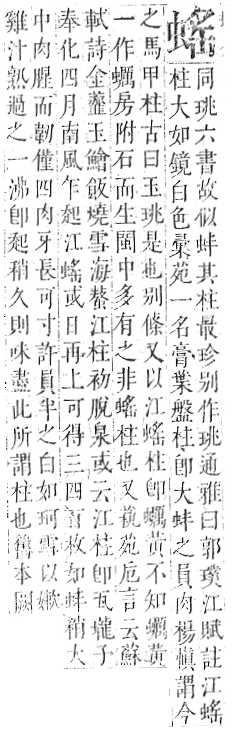 同珧六書故似蚌其柱最珍别作珧通雅曰郭璞江賦註江
柱大如鏡白色彙苑一名膏葉盤柱卽大蚌之員肉楊愼謂今
之馬甲柱古曰玉珧是也别條又以江柱卽蠣黃不知蠣黃
一作蠣房附石而生閩中多有之非柱也又藝苑卮言云蘇
軾詩金虀玉鱠飯燒雪海螯江柱初脫泉或云江柱卽瓦壠子
奉化四月南風乍起江或日再上可得三四百枚如蚌稍大
中肉腥而韌僅四肉牙長可寸許員半之白如珂雪以嫰
雞汁熟過之一沸卽起稍久則味盡此所謂柱也舊本闕